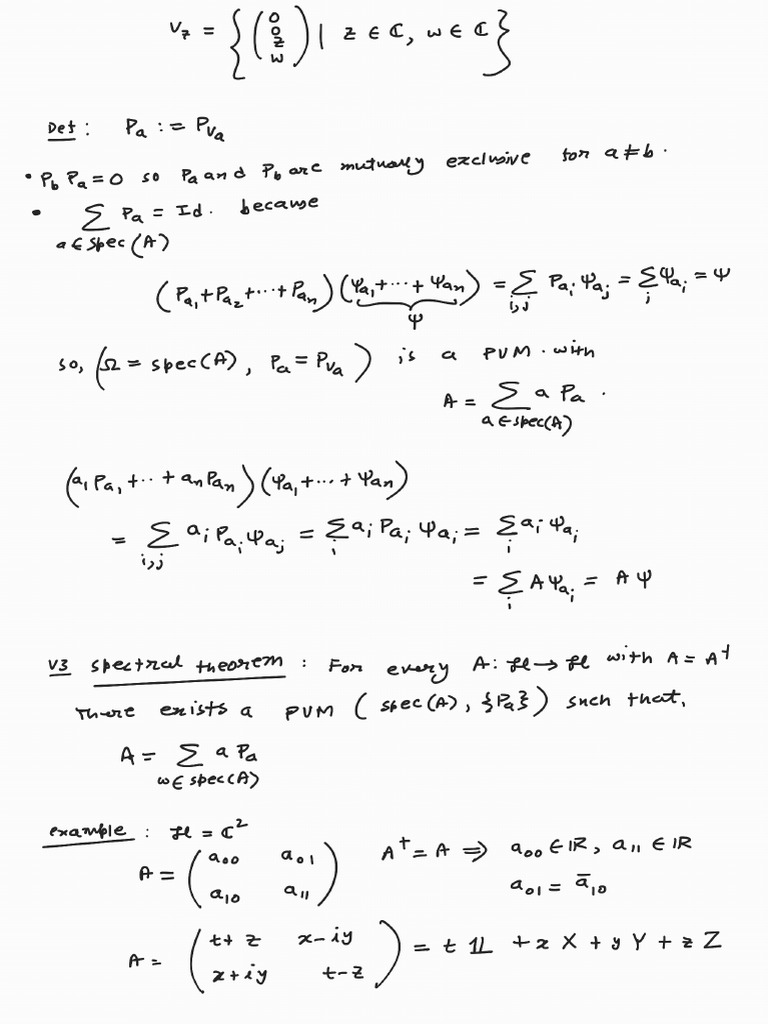 V₇ = { (0 0 z w) | z ∈ ℂ, w ∈ ℂ }
Def : Pₐ := P_{Vₐ}
• P_b Pₐ = 0 so Pₐ and P_b are mutually exclusive for a ≠ b.
• ∑_{a ∈ spec(A)} Pₐ = Id. because
(P_{a₁} + P_{a₂} + ··· + P_{aₙ}) (ψ_{a₁} + ··· + ψ_{aₙ}) = ∑_{i,j} P_{aᵢ} ψ_{aⱼ} = ∑_j ψ_{aᵢ} = ψ
ψ
so, (Ω = spec(A), Pₐ = P_{Vₐ}) is a PVM. with
A = ∑_{a ∈ spec(A)} a Pₐ .
(a₁ P_{a₁} + ·· + aₙ P_{aₙ}) (ψ_{a₁} + ··· + ψ_{aₙ})
= ∑_{i,j} aᵢ P_{aᵢ} ψ_{aⱼ} = ∑_i aᵢ P_{aᵢ} ψ_{aᵢ} = ∑_i aᵢ ψ_{aᵢ}
= ∑_i A ψ_{aᵢ} = A ψ
V3 spectral theorem : For every A: ℋ → ℋ with A = A†
There exists a PVM (spec(A), {Pₐ}) such that,
A = ∑_{w ∈ spec(A)} a Pₐ
example : ℋ = ℂ²
A = (a₀₀ a₀₁ a₁₀ a₁₁) A† = A ⇒ a₀₀ ∈ ℝ, a₁₁ ∈ ℝ
a₀₁ = ā₁₀
A = (t + z x − iy x + iy t − z) = t 𝟙 + x X + y Y + z Z